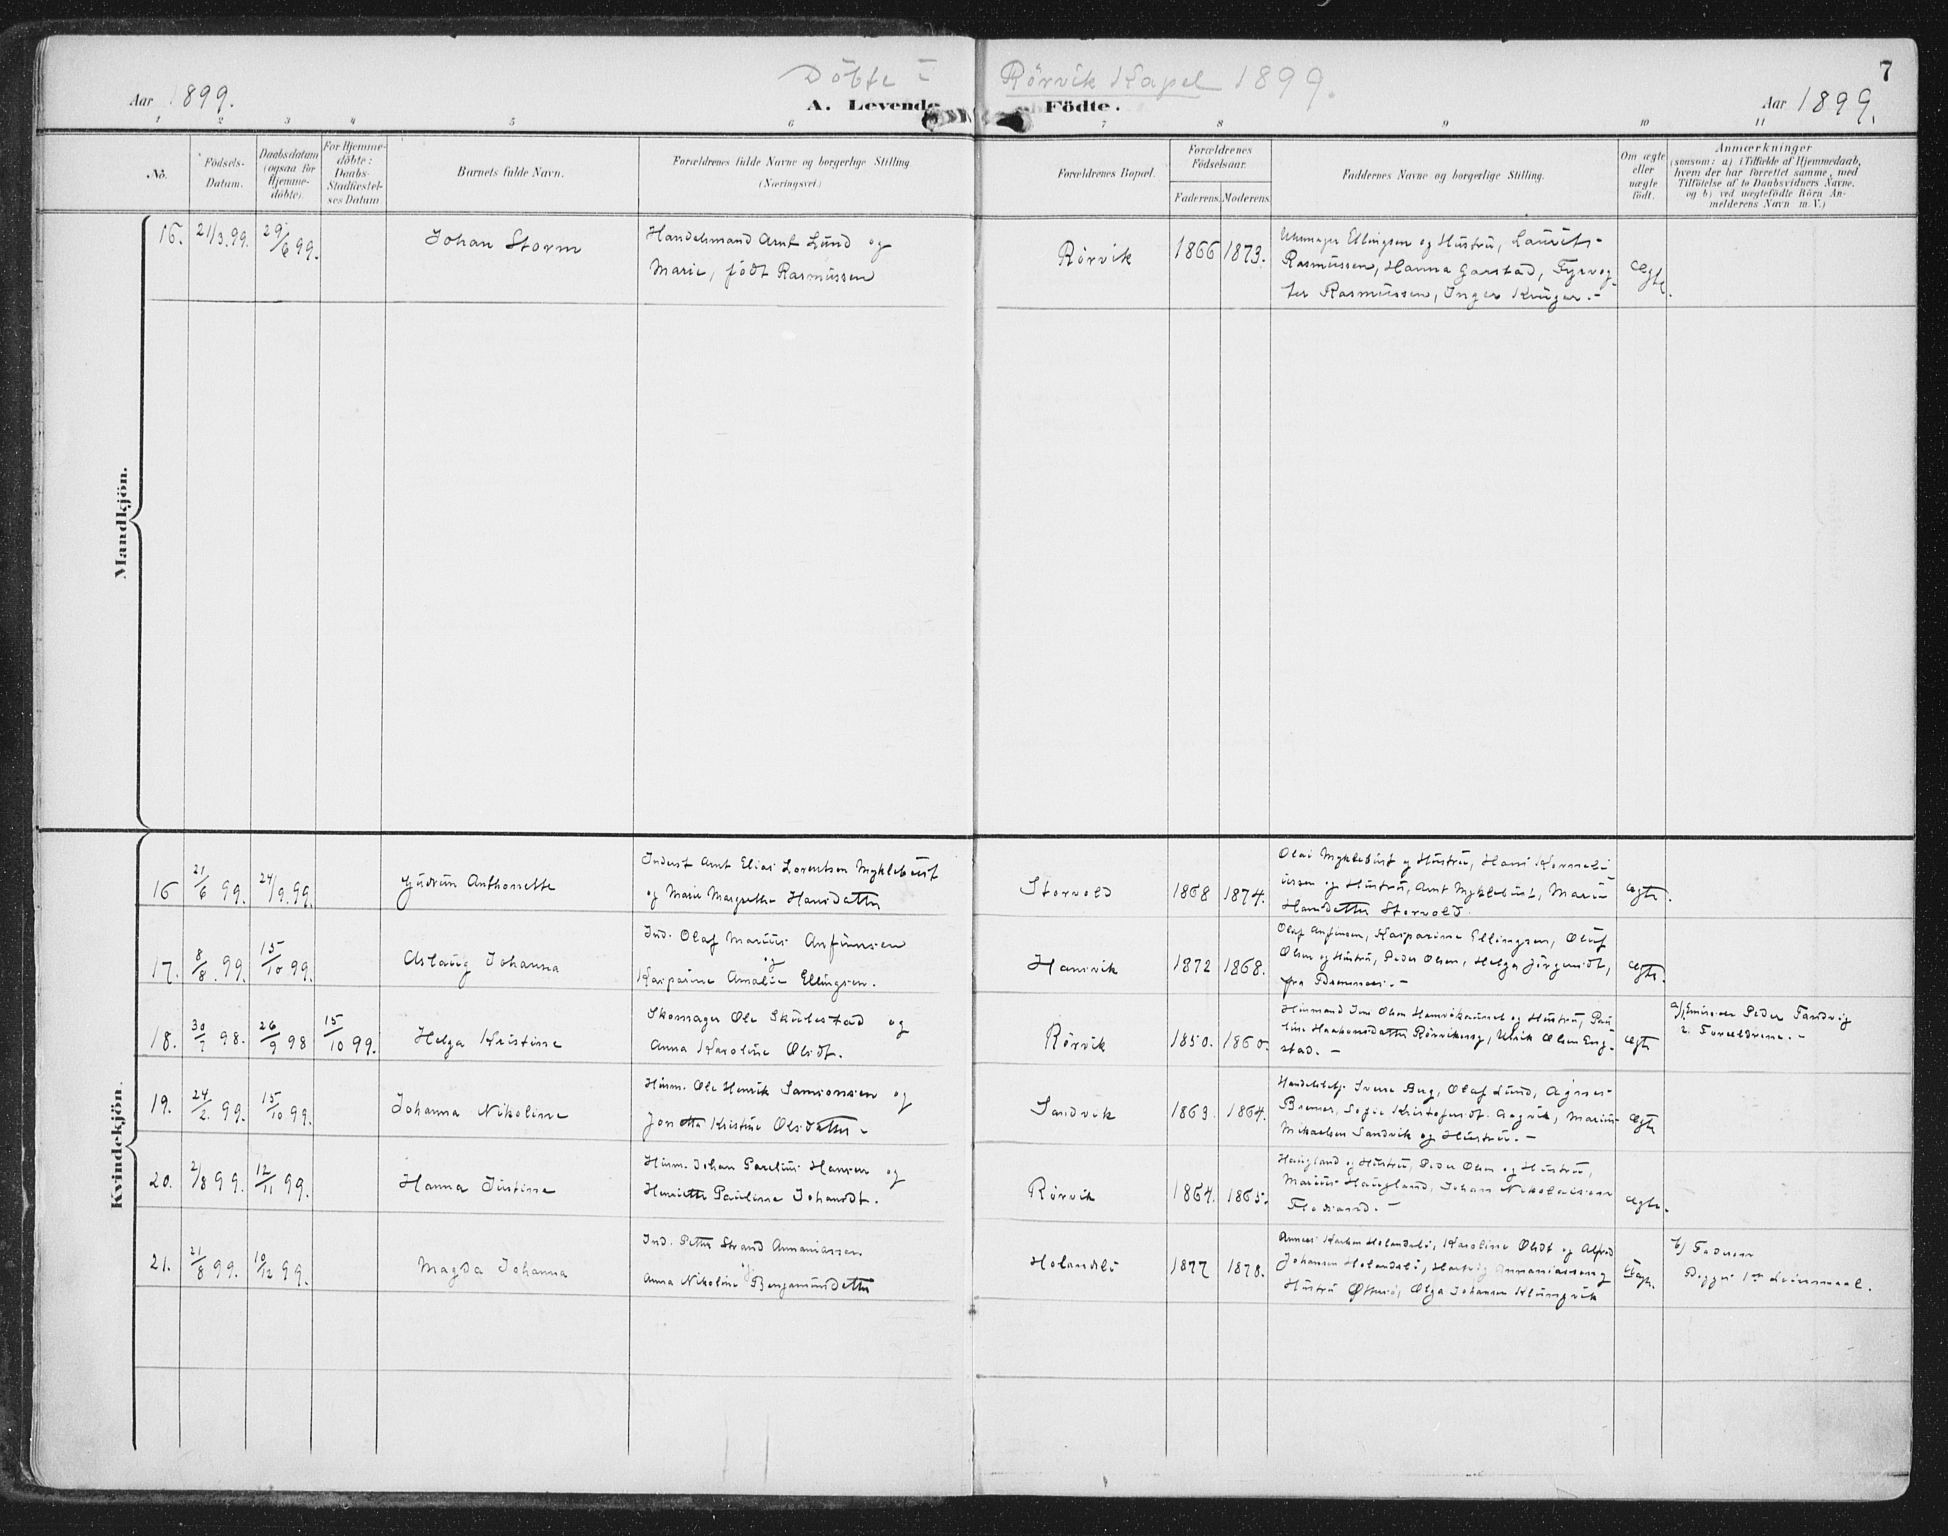 Döbte i Rörvik Kapel 1899.
7
Aar 1899.
A. Levende Födte.
Aar 1899.
1 2 3 4 5 6 7 8 9 10 11
No.
Födsels-Datum.
Daabsdatum (ogsaa for Hjemme-döbte).
For Hjemme-döbte: Daabs-Stadfæstel-ses Datum
Barnets fulde Navn.
Forældrenes fulde Navne og borgerlige Stilling
(Næringsvei.)
Forældrenes Bopæl.
Forældrenes Födselsaar.
Faderens Moderens
Faddernes Navne og borgerlige Stilling.
Om ægte eller uægte födt.
Anmærkninger
(saasom: a) i Tilfælde af Hjemmedaab,
hvem der har forrettet samme, med
Tilföielse af to Daabsvidners Navne.
og b) ved uægtefödte Börn An-
melderens Navn m. V.)
Mandkjön.
16. 21/3.99. 29/6 99. Johan Storm
Handelsmand Arnt Lund og
Marie, født Rasmussen
Rörvik 1866 1873.
Ellingsen og Hustru, Laurits
Rasmussen, Hanna Garstad, Fyrvog-
ter Rasmussen, Inger Krüger.-
ægte.
Kvindekjön.
16 21/6 99. 24/9.99. Gudrun Anthonette
Inderst Arnt Elias Lorentsen Myklebust
og Marie Margrethe Hansdatter
Storvold 1868 1874.
Olai Myklebust og Hustru, Hans Korneli-
ussen og Hustru, Arnt Myklebust, Marie
Hansdatter Storvold.
ægte.
17. 8/8.99. 15/10 99. Aslaug Johanna
Ind. Olaf Marius Anfinnsen
og
Kaspaline Amalie Ellingsen.
Hansvik 1872 1868.
Olaf Anfinsen, Kasparine Ellingsen, Oluf
Olsen og Hustru, Peder Olsen, Helga Jörgensdt,
fra
ægte.
18. 30/7 98. 26/9 98 15/10 99. Helga Kristine
Skomager Ole Skulestad og
Anna Karoline Olsdt.
Rörvik 1850. 1860.
Husmand Olsen og Hustru, Pau-
line Haakonsdatter Ulrik Olsen Eng-
stad.-
ægte
a) Peder Sandvig
2. Forældrene.-
19. 24/2 99. 15/10 99. Johanna Nikoline
Husm. Ole Henrik Samsonsen og
Jonetta Kristine Olsdatter-
Sandvik 1863. 1864.
Handelsbetj. Sverre Berg, Olaf Lund, Agnes
Bremer, Sofie Kristofersdt. Aagvik, Marius
Mikaelsen Sandvik og Hustru.-
ægte
20. 2/8 99. 12/11 99. Hanna Justine
Husm. Johan Parelius Hansen og
Henriette Pauline Johansdt.
Rörvik 1864. 1865.
Haugland og Hustru, Peder Olsen og Hustru,
Marius Haugland, Johan Nikolaisen
ægte.
21. 21/8 99. 10/12 99. Magda Johanna
Ind. Petter Strand Annaniassen
og
Anna Nikoline Benjaminsdatter
Holandsö 1877 1878.
Karlsen Holandsö, Karoline Olsdt og Alfred
Johansen Holandsö, Hartvig Annaniassen og
Hustru Ottersö, Olga Johansen
Uægte.
b) Faderen
Begges 1ste Leiermaal.